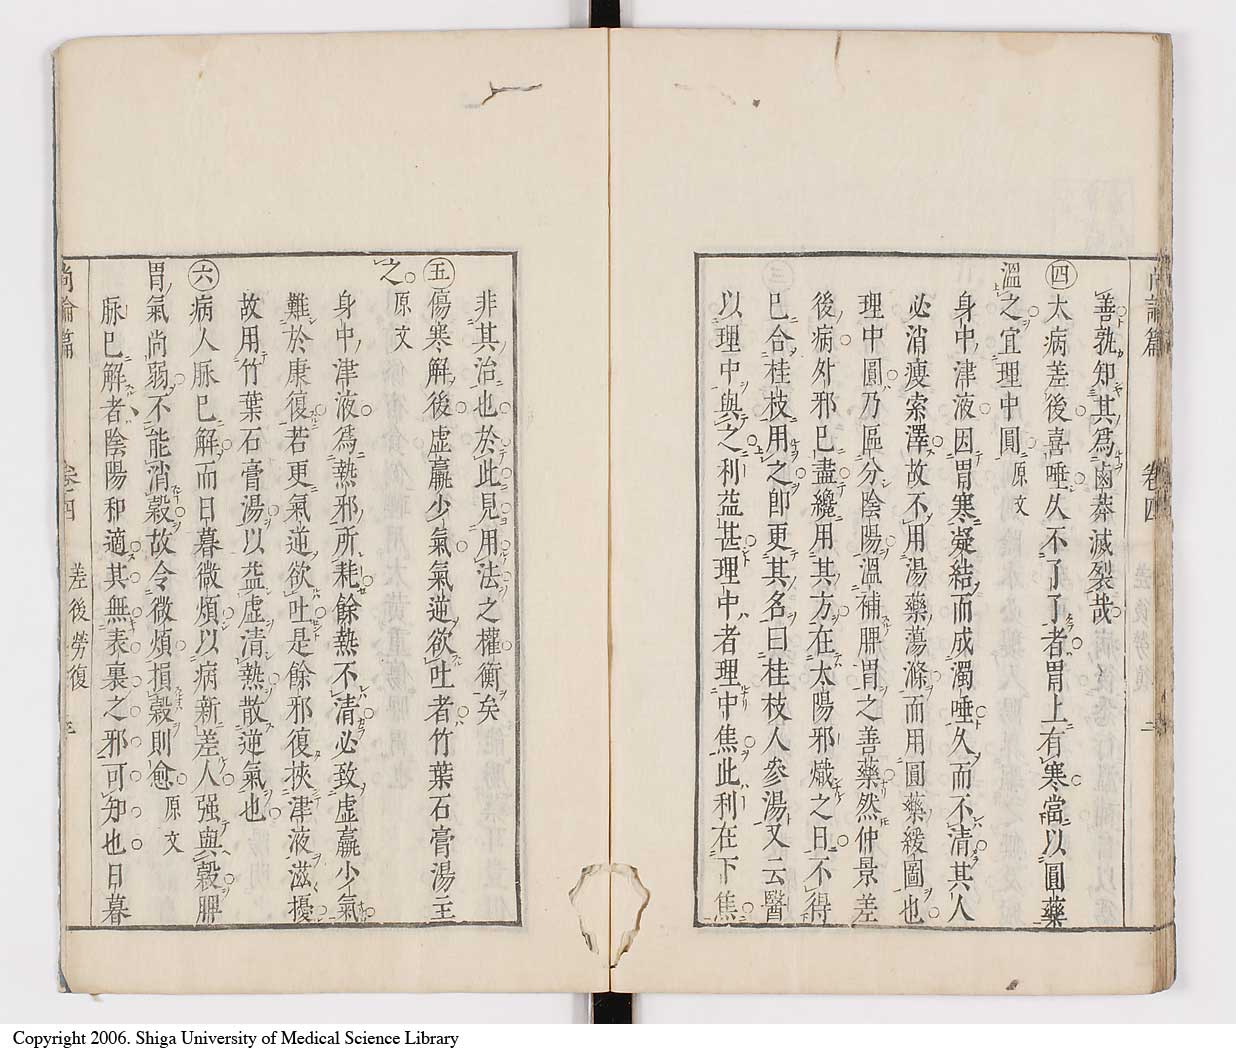 尚論篇 卷四 差後勞復
善孰知其爲鹵莽滅裂哉
㊃大病差後喜唾久不了了者胃上有寒當以圓藥
溫之宜理中圓 原文
身中津液因胃寒凝結而成濁唾久而不清其人
必消瘦索澤故不用湯藥蕩滌而用圓藥緩圖也
理中圓乃區分陰陽溫補脾胃之善藥然仲景差
後病外邪已盡纔用其方在太陽邪熾之日不得
已合桂枝用之卽更其名曰桂枝人參湯又云醫
以理中與之利益甚理中者理中焦此利在下焦
非其治也於此見用法之權衡矣
㊄傷寒解後虛羸少氣氣逆欲吐者竹葉石膏湯主
之 原文
身中津液爲熱邪所耗餘熱不淸必致虛羸少氣
難於康復若更氣逆欲吐是餘邪復挾津液滋擾
故用竹葉石膏湯以益虛清熱散逆氣也
㊅病人脉已解而日暮微煩以病新差人强與穀脾
胃氣尚弱不能消穀故令微煩損穀則愈 原文
脉已解者陰陽和適其無表裏之邪可知也日暮
尚論篇 卷四 差後勞復
Copyright 2006. Shiga University of Medical Science Library